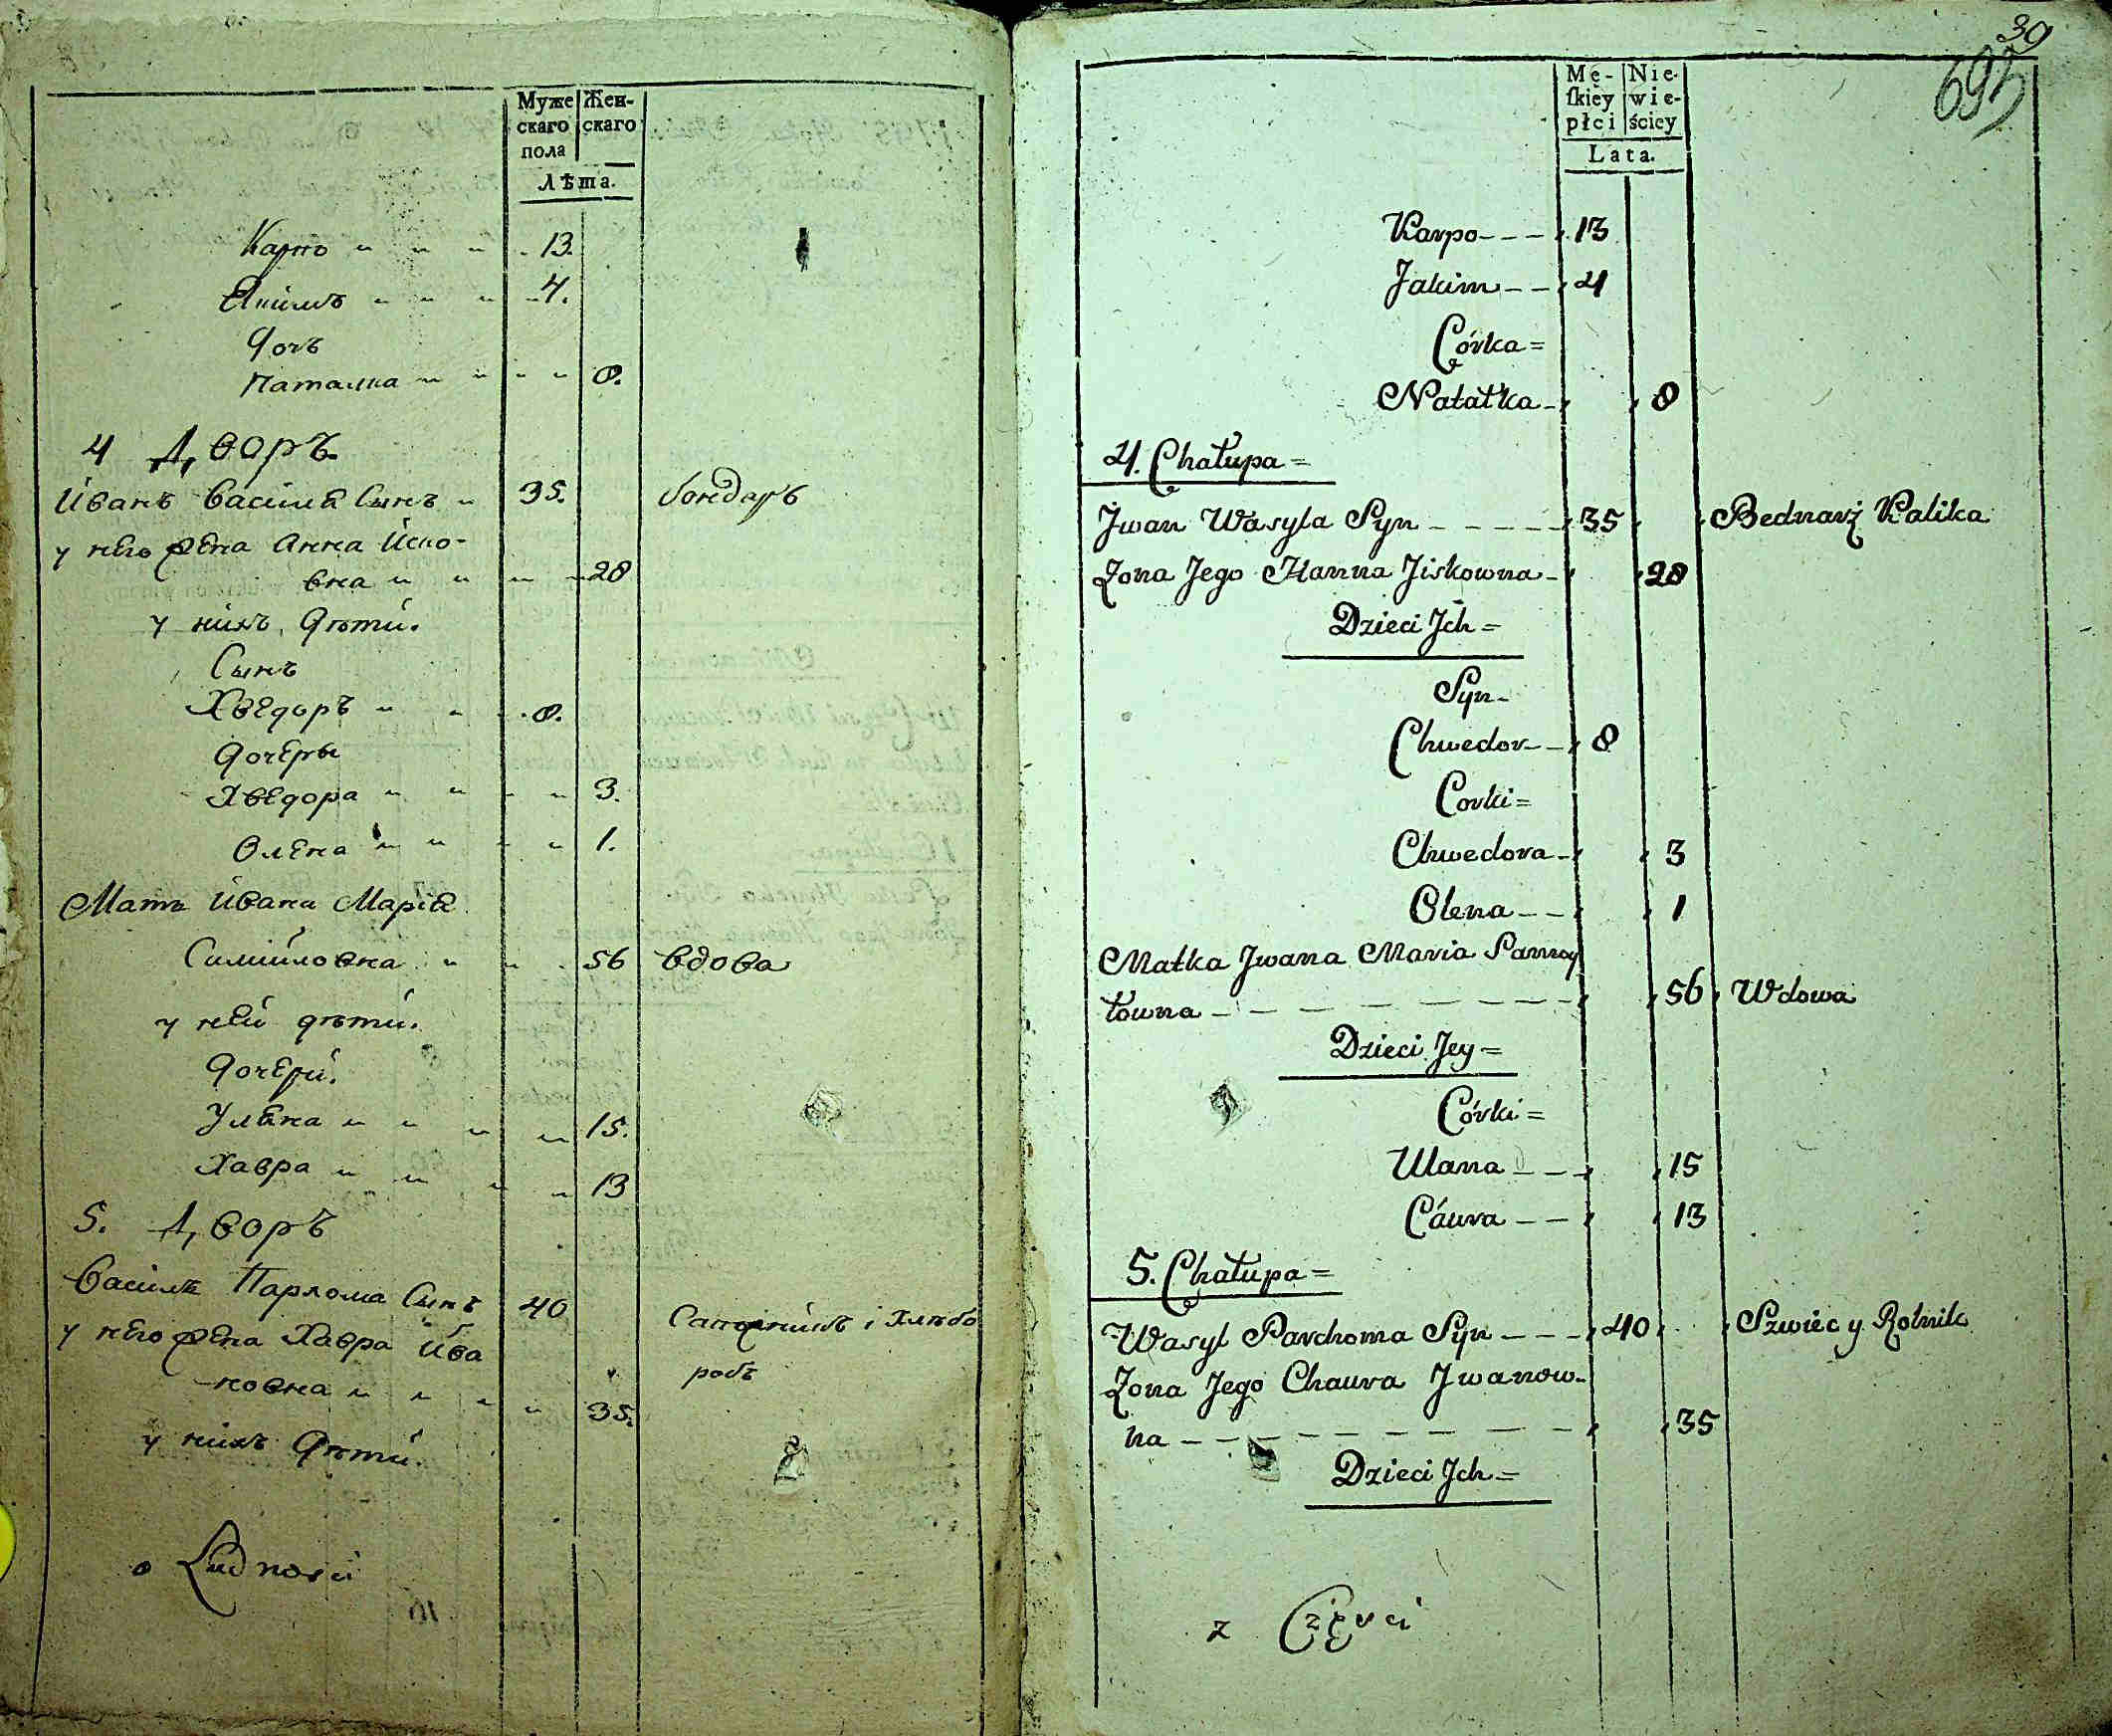 Муже
скаго
пола
Жен-
скаго
Лѣта.
Карпо 13.
Якимъ 4.
Дочь
Наталка 8.
4 Дворъ.
Иванъ Василя Сынъ 35. бондарь
у него жена Анна Иско-
вна 28
у нихъ дѣти.
Сынъ
Хведоръ 8.
дочеры
Хведора 3.
Олена 1.
Мать Ивана Марія
Самийловна 56 вдова
у ней дѣти.
дочери.
Уляна 15.
Хавра 13
5. Дворъ
Василь Пархома Сынъ 40 Сапожникъ і хлѣбо
у него жена Хавра Ива
новна 35. робъ
у нихъ дѣти.
o Ludności
39
693
Mę-
ſkiey
płci
Nie-
wie-
ściey
Lata.
Karpo - - - 13
Jakim - - 4
Córka =
Natałka - 8
4. Chałupa =
Jwan Wasyla Syn - - - - - 35 Bednarż Kalika
Żona Jego Hanna Jiskowna - 28
Dzieci Jch =
Syn -
Chwedor - - 8
Corki =
Chwedora - 3
Olena - - 1
Matka Jwana Maria Samoy
łowna - - - - - - - - 56 Wdowa
Dzieci Jey =
Córki =
Ulana - - - 15
Cáwra - - 13
5. Chałupa =
Wasyl Parchoma Syn - - - 40 Szwiec y Rolnik
Żona Jego Chawra Jwanow-
na - - - - - - - - 35
Dzieci Jch =
z Częsci